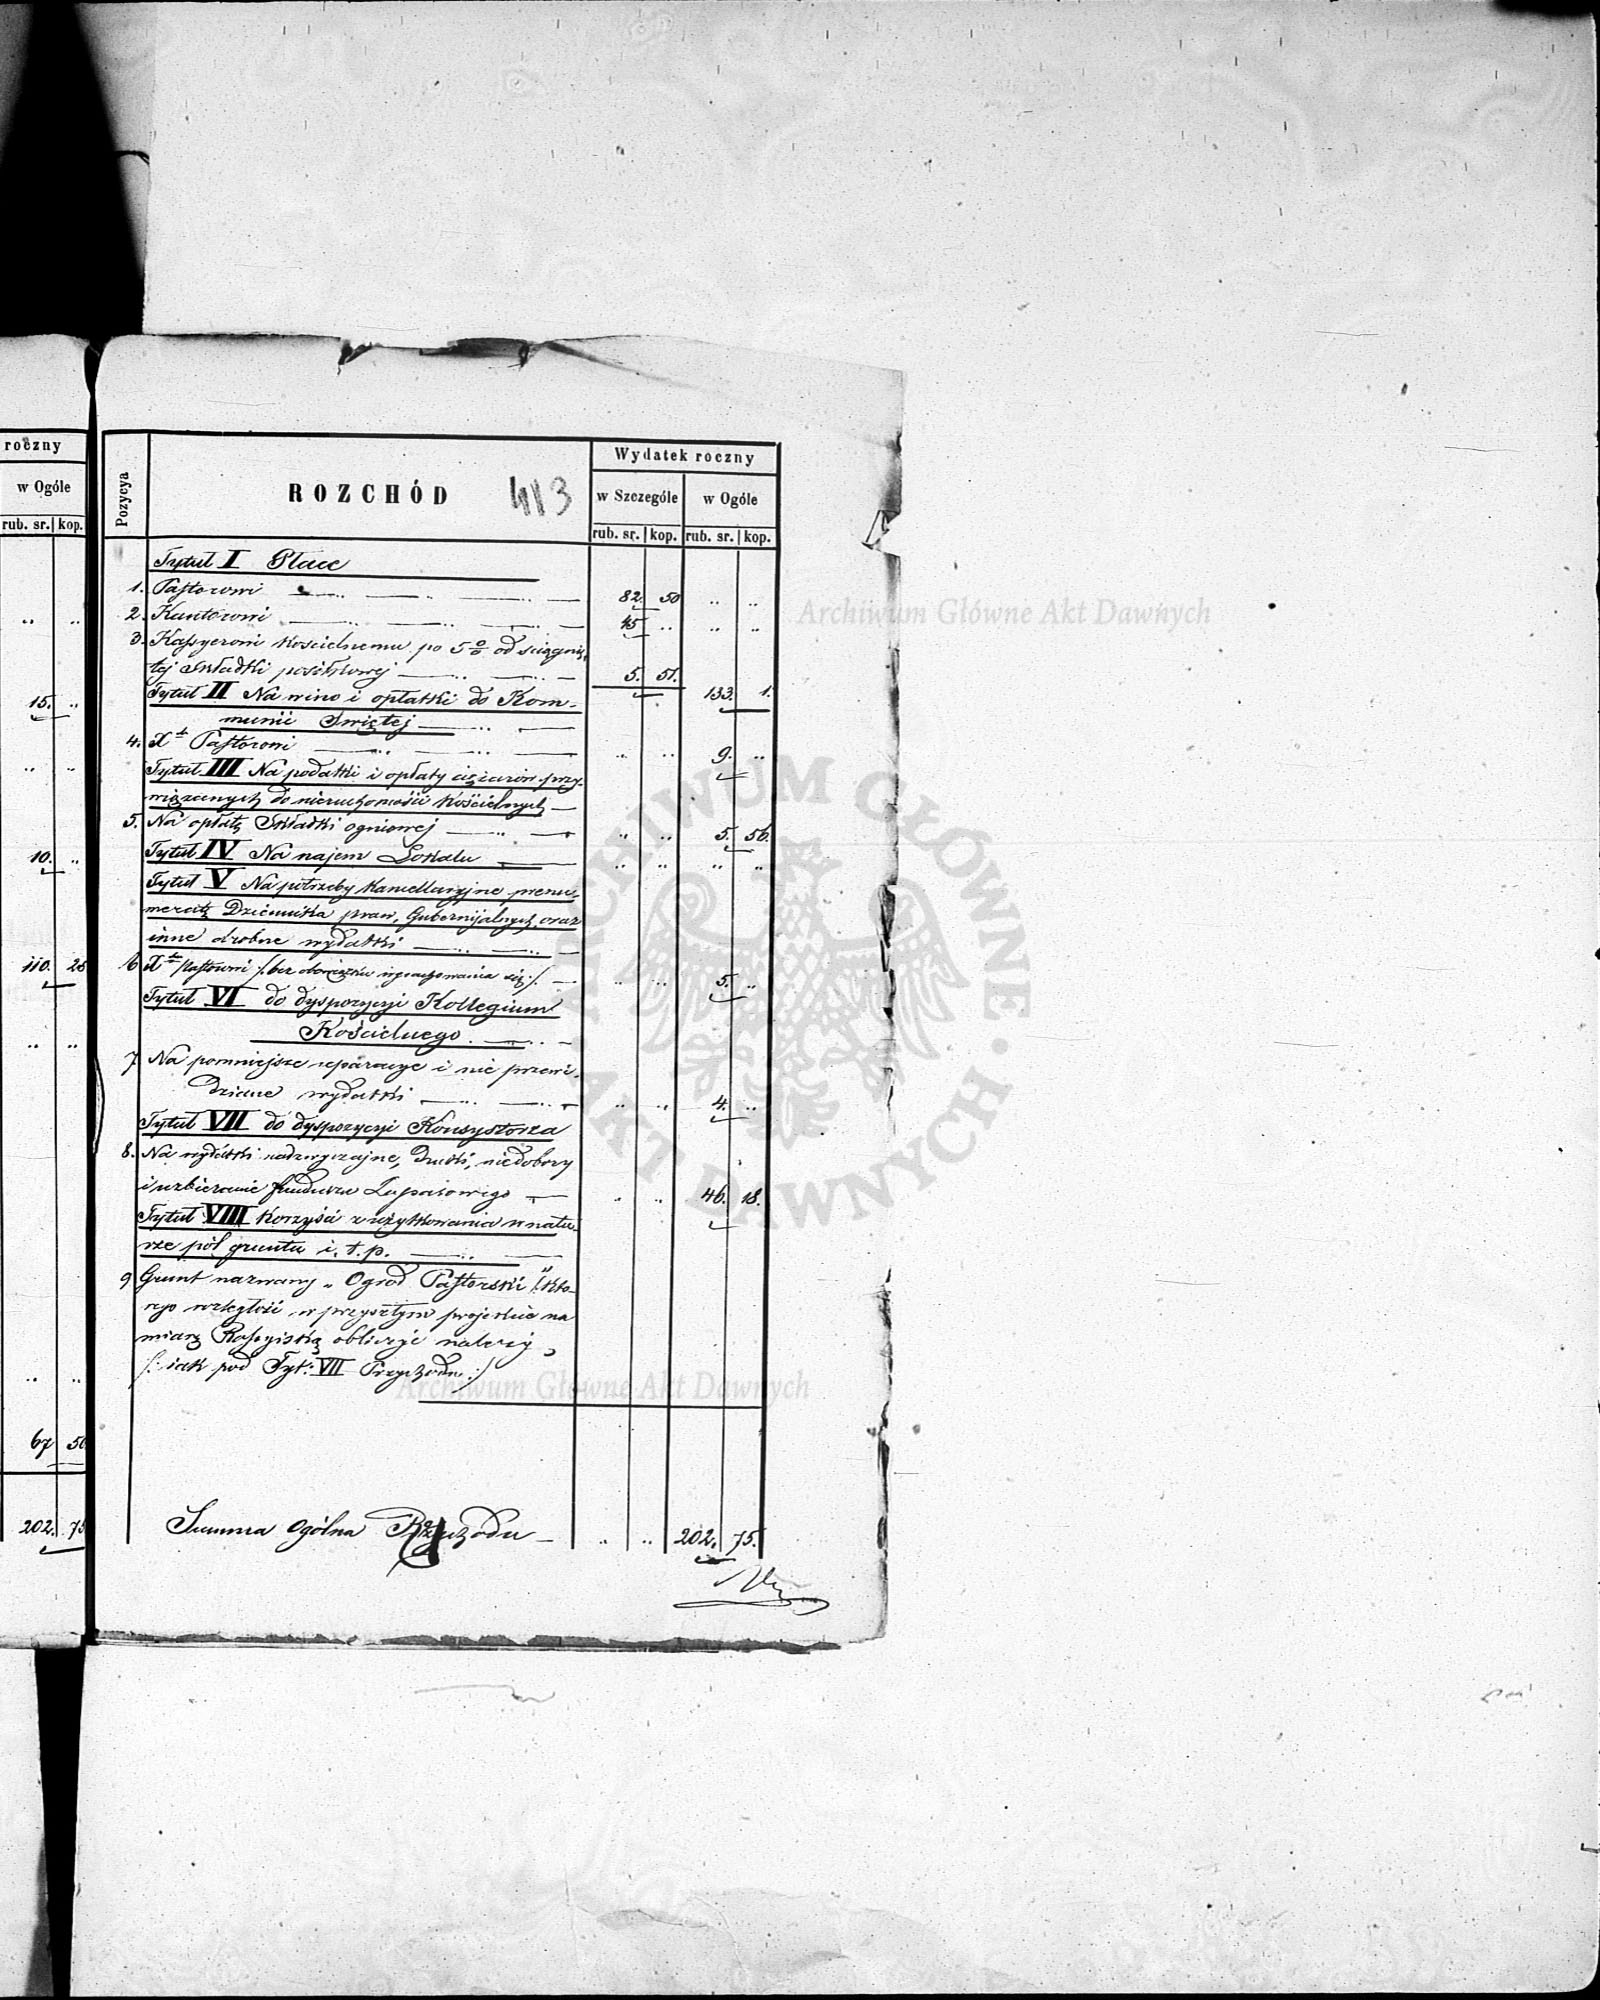 roczny
w Ogóle
rub. sr. kop.
" "
15. "
" "
10. "
110. 25
" "
" "
67 50
202. 75
Pozycya ROZCHÓD 413 Wydatek roczny
w Szczególe w Ogóle
rub. sr. kop. rub. sr. kop.
Tytuł I Płace
1. Pastorowi 82. 50 " "
2. Kantorowi 45 " " "
3. Kassyerowi Kościelnemu po 5% od ściągnię-
tej Składki posiłkowej 5. 51. 133. 1.
Tytuł II Na wino i opłatki do Kom-
munii Świętej
4. Xu Pastorowi " " 9. "
Tytuł III Na podatki i opłaty ciężarów przy-
wiązanych do nieruchomości Kościelnych
5. Na opłatę Składki ogniowej " " 5. 56.
Tytuł IV Na najem Lokalu " " " "
Tytuł V Na potrzeby Kancellaryjne prenu-
meratę Dziennika praw, Gubernijalnych oraz
inne drobne wydatki
6 Xu Pastorowi /: bez obowiązku wyrachowania się :/ " " 5. "
Tytuł VI do dyspozycyi Kollegium
Kościelnego.
7 Na pomniejsze reparacye i nie przewi-
dziane wydatki " " 4. "
Tytuł VII do dyspozycyi Konsystorza
8. Na wydatki nadzwyczajne, Druki, niedobory
i uzbieranie funduszu Zapasowego " " 46. 18.
Tytuł VIII Korzyści z użytkowania w natu-
rze pól gruntu i. t. p.
9 Grunt nazwany „Ogród Pastorski" /: któ-
rego rozległość w przyszłym projekcie na
miarę Rossyiską obliczyć należy,
/: jak pod Tyt: VII Przychodu :/
Summa Ogólna Rozchodu " " 202. 75.
Archiwum Główne Akt Dawnych
ARCHIWUM GŁÓWNE · AKT DAWNYCH ·
Archiwum Główne Akt Dawnych